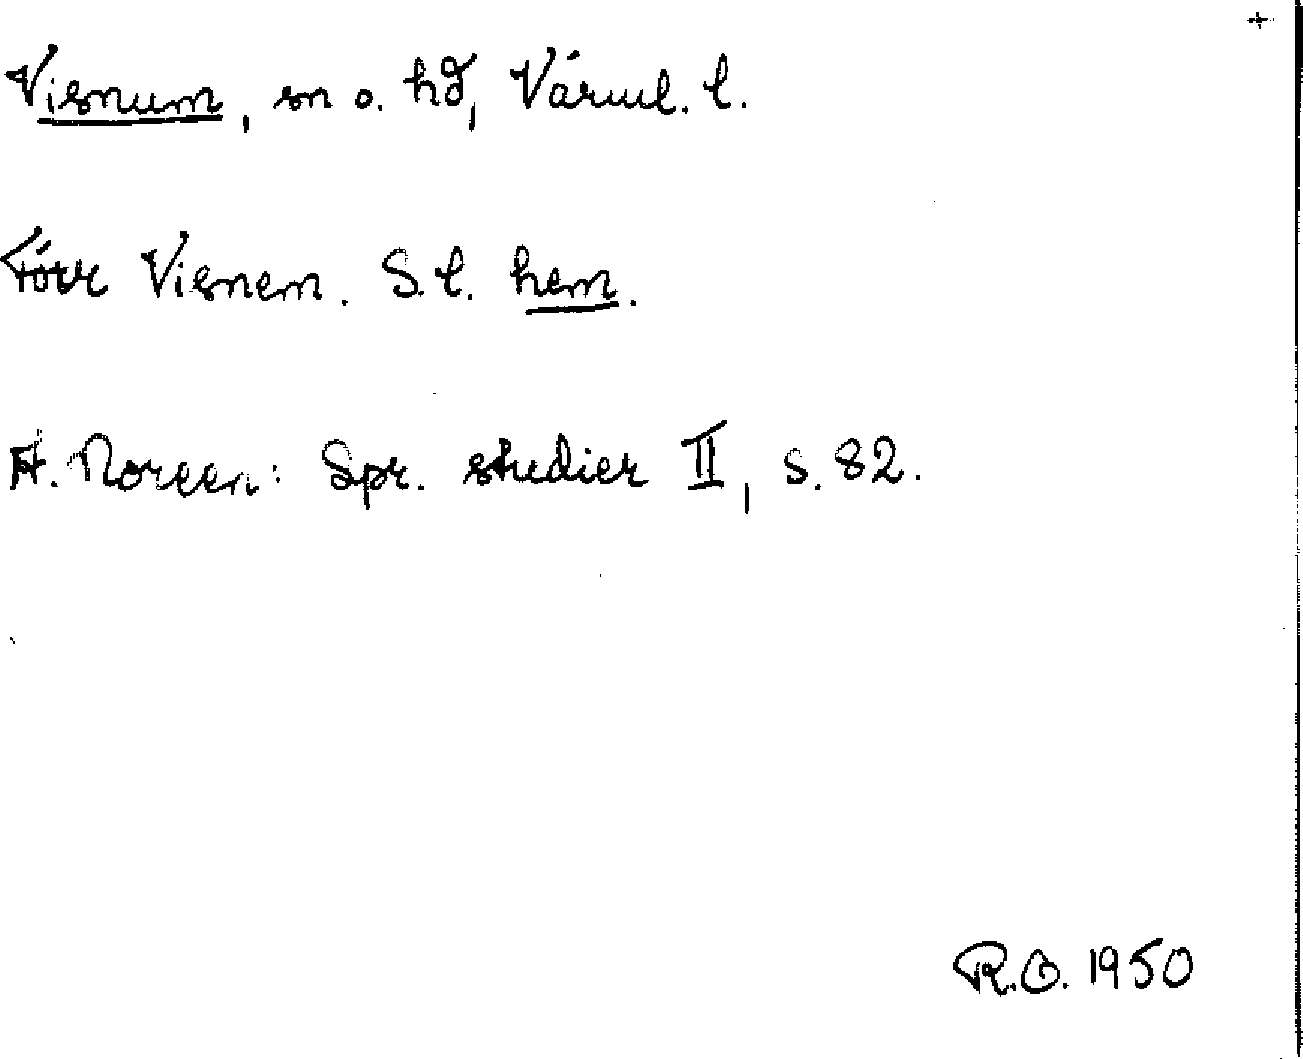 +
Visnum, sn o. hd, Värml. l.
Förr Visnem. S.l. hem.
A. Noreen: Spr. studier II, s. 82.
R.O. 1950